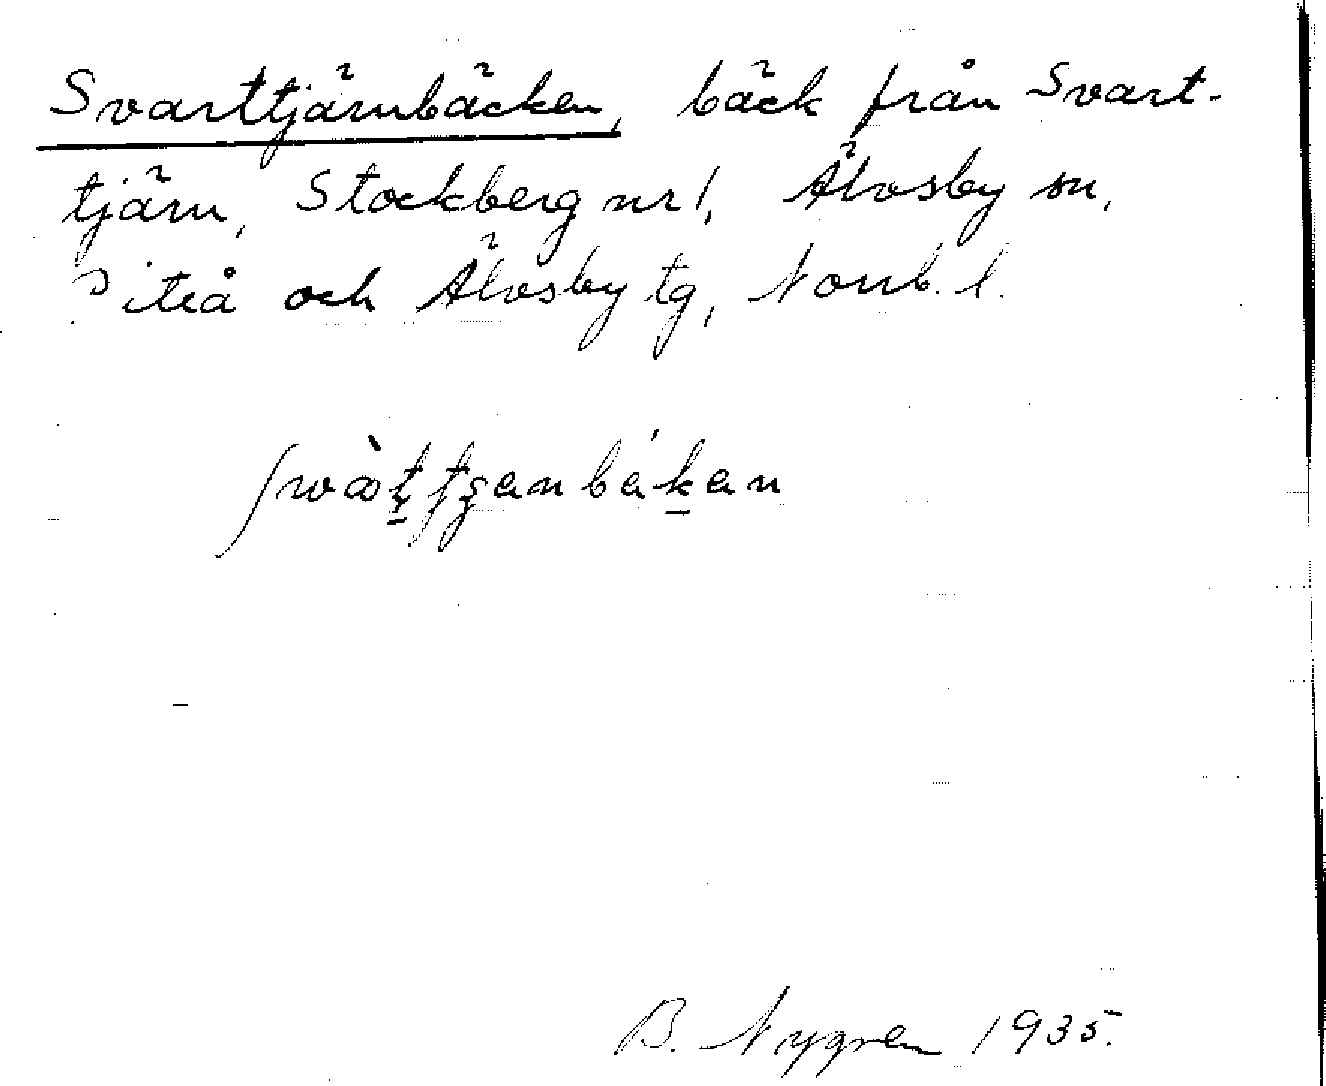 Svarttjärnbäcken, bäck från Svart-
tjärn, Stockberg nr 1, Älvsby sn,
Piteå och Älvsby tg, Norrb. l.
B. Nygren 1935.